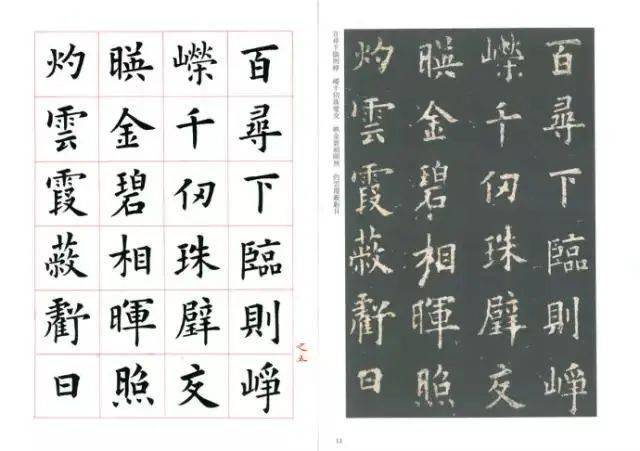 百尋下臨則崢
嶸千仞珠璧交
暎金碧相暉照
灼雲霞蔽虧日
之五
百尋下臨則崢　嶸千仞珠璧交　映金碧相暉照　灼雲霞蔽虧日
百尋下臨則崢
嶸千仞珠璧交
暎金碧相暉照
灼雲霞蔽虧日